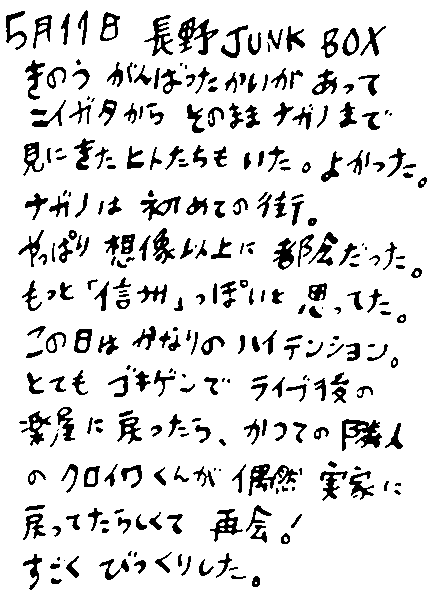 5月11日 長野 JUNK BOX
きのう がんばったかいが あって
ニイガタから そのまま ナガノまで
見にきたヒトたちも いた。よかった。
ナガノは 初めての街。
やっぱり 想像以上に 都会だった。
もっと「信州」っぽいと 思ってた。
この日は かなりの ハイテンション。
とても ゴキゲンで ライブ後の
楽屋に 戻ったら、かつての 隣人
の クロイワくんが 偶然 実家に
戻ってたらしくて 再会。!
すごく びっくりした。